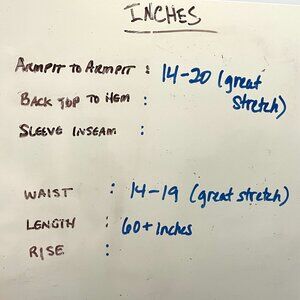 INCHES
ARMPIT TO ARMPIT : 14-20 (great
stretch)
BACK TOP TO HEM :
SLEEVE INSEAM :
WAIST : 14-19 (great stretch)
LENGTH : 60+ inches
RISE :